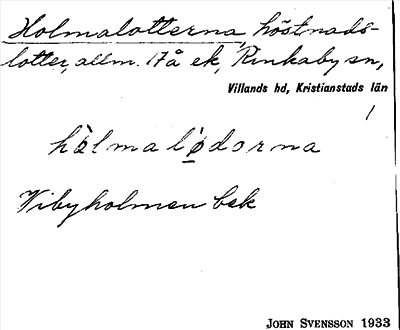 Holmalotterna, höstnads-
lotter, allm. 17å ek, Rinkaby sn,
Villands hd, Kristianstads län
1
hòlmalø̀dorna
Vibyholmen bek
JOHN SVENSSON 1933